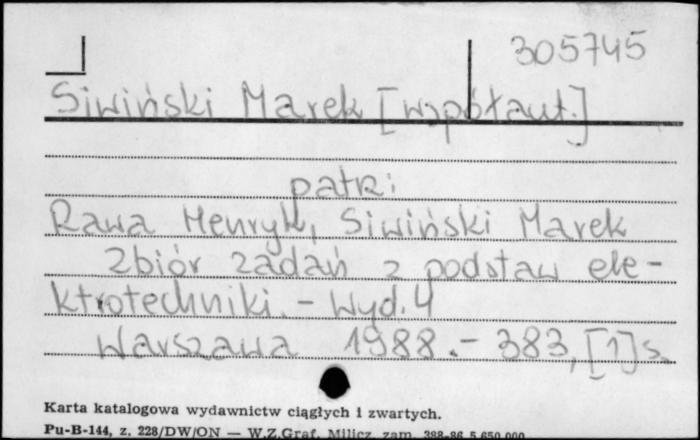 305745
Siwiński Marek [współaut.]
patrz:
Rawa Henryk, Siwiński Marek
Zbiór zadań z podstaw ele-
ktrotechniki. – Wyd. 4
Warszawa 1988. – 383, [1] s.
Karta katalogowa wydawnictw ciągłych i zwartych.
Pu-B-144, z. 228/DW/ON — W.Z.Graf. Milicz, zam. 398-86 5.650.000